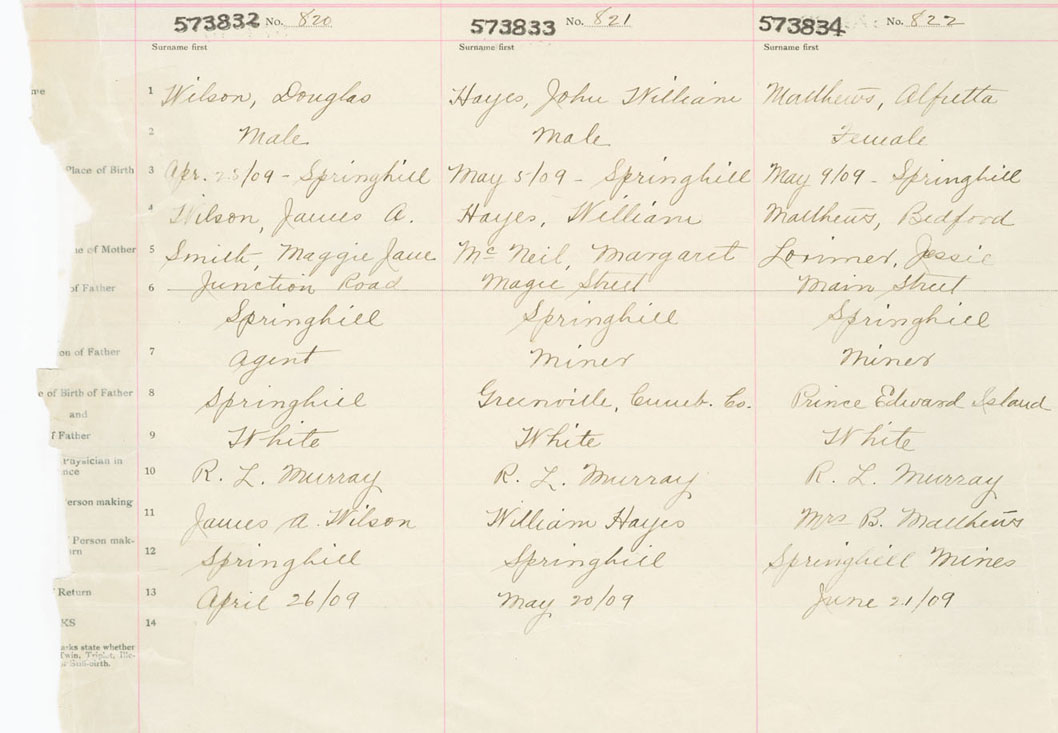 573832 No. 820 573833 No. 821 573834 No. 822
Surname first Surname first Surname first
me 1 Wilson, Douglas Hayes, John William Matthews, Alfretta
2 Male Male Female
Place of Birth 3 Apr. 25/09 - Springhill May 5/09 - Springhill May 9/09 - Springhill
4 Wilson, James A. Hayes, William Matthews, Bedford
ne of Mother 5 Smith, Maggie Jane Mc Neil, Margaret Lorimer, Jessie
of Father 6 Junction Road Magie Street Main Street
Springhill Springhill Springhill
on of Father 7 Agent Miner Miner
e of Birth of Father 8 Springhill Greenville, Cumb. Co. Prince Edward Island
and
f Father 9 White White White
Physician in
nce 10 R. L. Murray R. L. Murray R. L. Murray
erson making
11 James A. Wilson William Hayes Mrs B. Matthews
Person mak-
rn 12 Springhill Springhill Springhill Mines
Return 13 April 26/09 May 20/09 June 21/09
KS 14
arks state whether
Twin, Triplet, Ille-
or Still-birth.